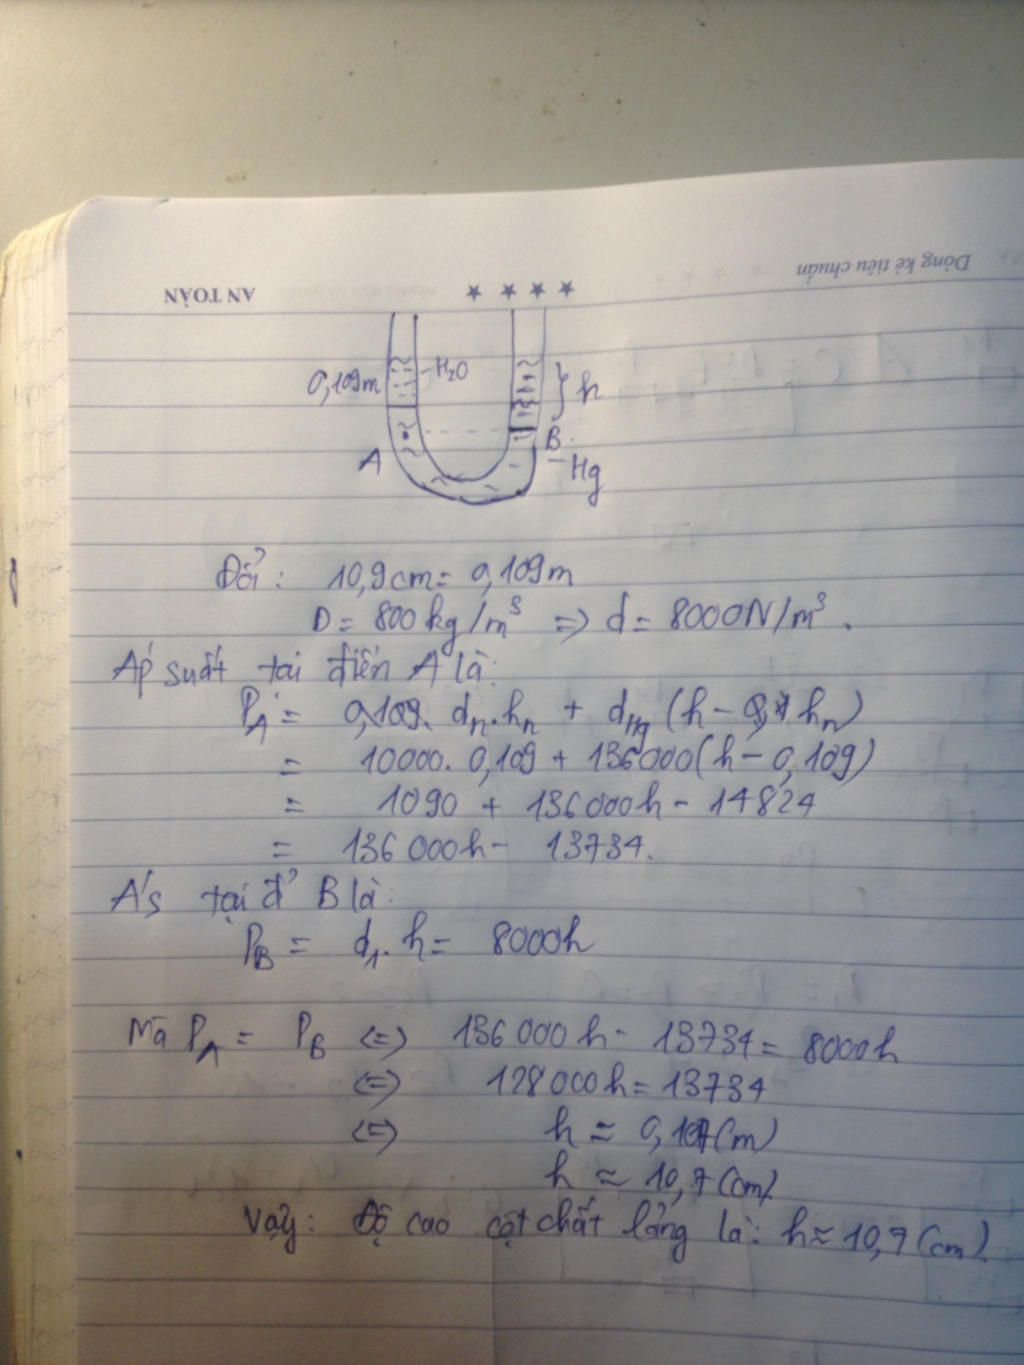 Dòng kẻ tiêu chuẩn
★ ★ ★ ★
AN TOÀN
0,109m
H2O
h
A
B
Hg
Đổi: 10,9cm = 0,109m
D = 800 kg/m³ => d = 8000N/m³.
Áp suất tại điển A là:
PA = dn.hn + dHg (h - hn)
= 10000. 0,109 + 136000(h - 0,109)
= 1090 + 136000h - 14824
= 136000h - 13734.
A's tại đ' B là:
PB = d1. h = 8000h
Mà PA = PB <=> 136000h - 13734 = 8000h
<=> 128000h = 13734
<=> h ≈ 0,107(m)
h ≈ 10,7(cm)
Vậy: Độ cao cột chất lỏng là: h ≈ 10,7(cm)